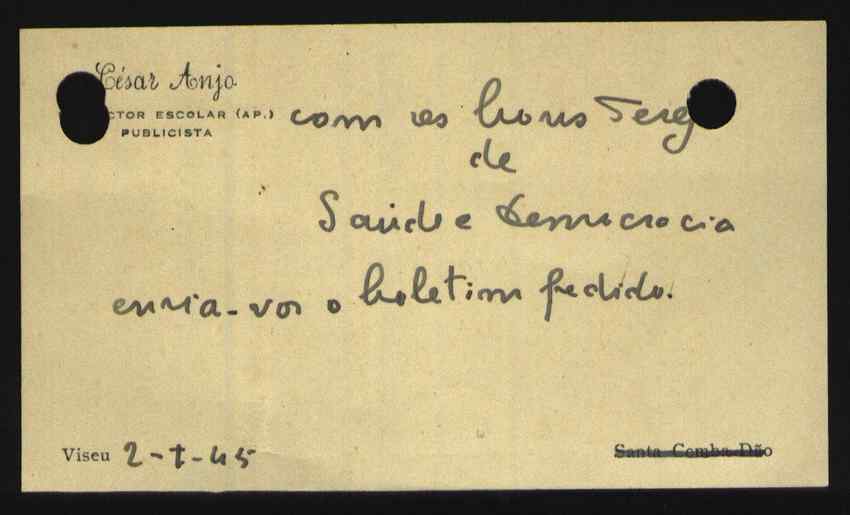 César Anjo
CTOR ESCOLAR (AP.)
PUBLICISTA
com os bons
de
Saúde e Democracia
envia-vos o boletim pedido.
Viseu 2-I-45
Santa Comba Dão